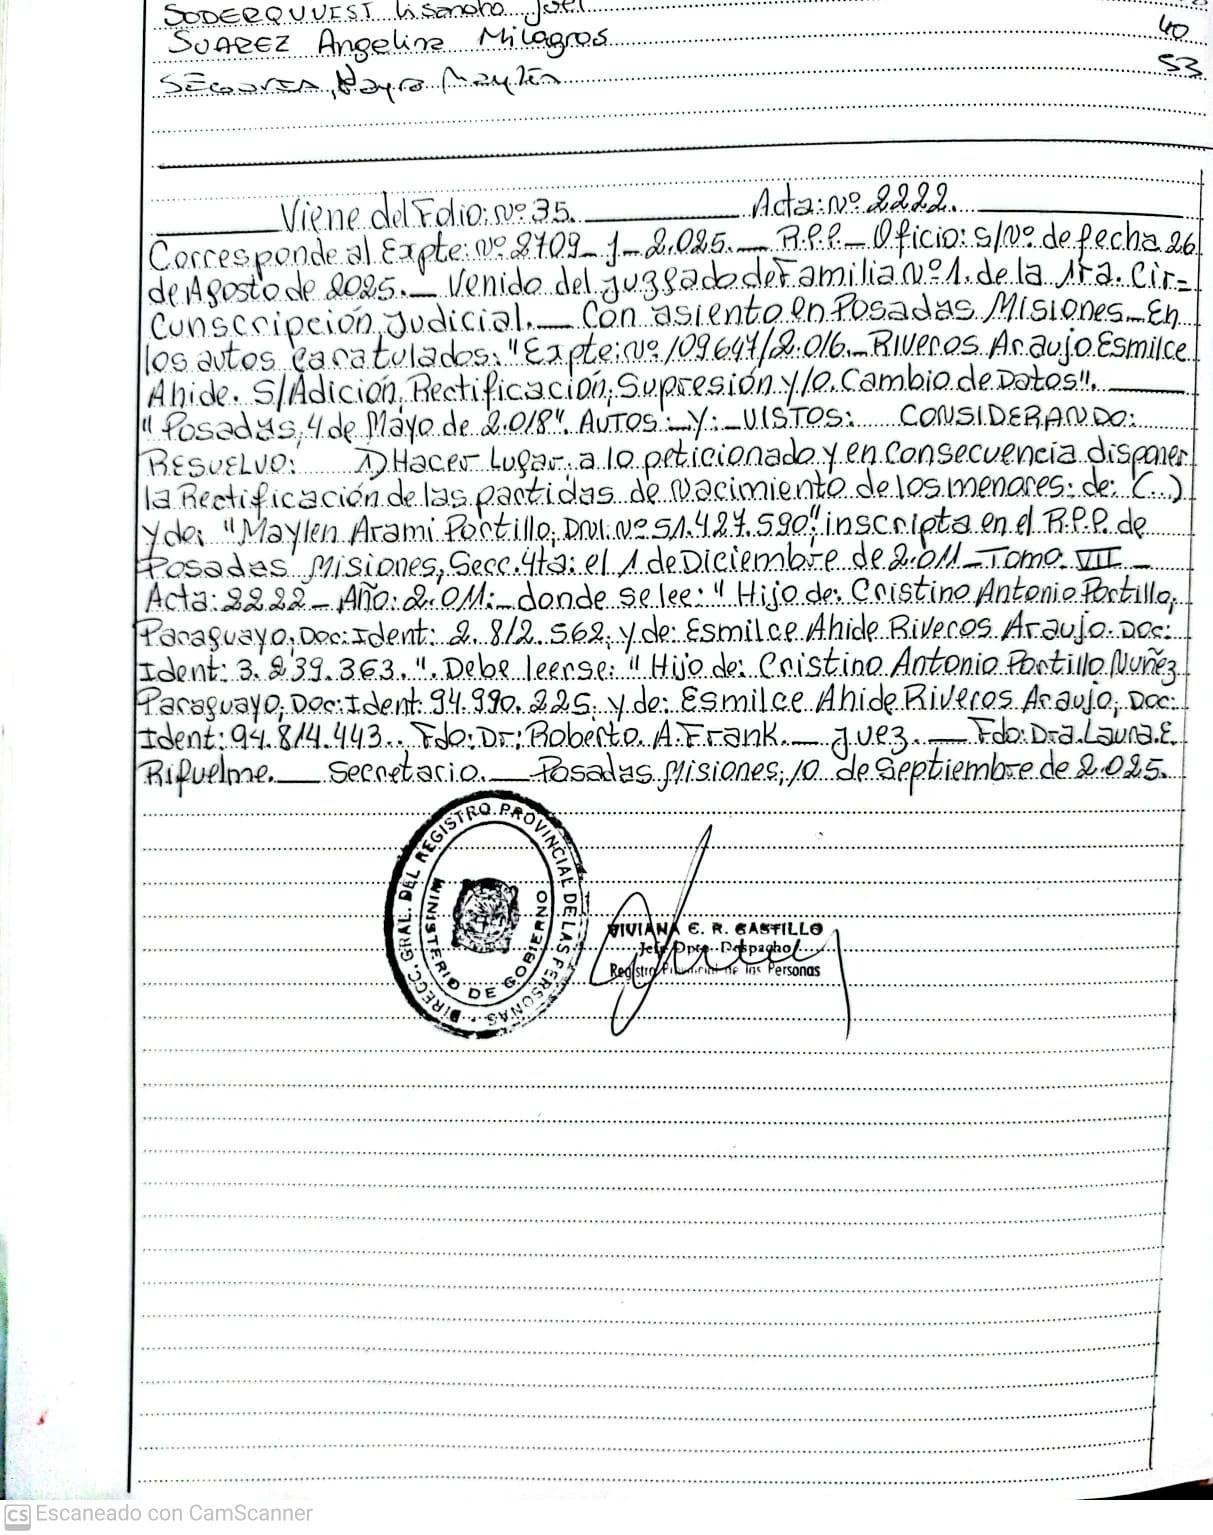 SODERQUVIST Lisandro Joel
SUAREZ Angelina Milagros 40
SEGOVIA, Maylen 53
Viene del Folio: Nº 35. Acta: Nº 2222.
Corresponde al Expte: Nº 8709_J_2.025._ R.P.P_ Oficio: S/Nº de fecha 26
de Agosto de 2025._ Venido del Juzgado de Familia Nº 1. de la 1ra. Cir=
cunscripción Judicial._ Con asiento en Posadas Misiones_ En
los autos caratulados: "Expte: Nº 109647/2.016_ Riveros Araujo Esmilce
Ahide. S/Adición, Rectificación, Supresión y/o Cambio de Datos".
"Posadas, 4 de Mayo de 2.018". AUTOS: Y: VISTOS: CONSIDERANDO:
RESUELVO: 1) Hacer Lugar a lo peticionado y en consecuencia disponer
la Rectificación de las partidas de Nacimiento de los menores: de: (...)
y de: "Maylen Arami Portillo, DNI. Nº 51.427.590", inscripta en el R.P.P. de
Posadas Misiones, Secc. 4ta: el 1 de Diciembre de 2.011_ Tomo: VII_
Acta: 2222_ Año: 2.011:_ donde se lee: "Hijo de: Cristino Antonio Portillo,
Paraguayo, Doc: Ident: 2.812.562, y de: Esmilce Ahide Riveros Araujo. Doc:
Ident: 3.239.363.". Debe leerse: "Hijo de: Cristino Antonio Portillo Nuñez
Paraguayo, Doc: Ident: 94.990.225, y de: Esmilce Ahide Riveros Araujo, Doc:
Ident: 94.814.443.. Fdo: Dr: Roberto. A. Frank._ Juez._ Fdo: Dra. Laura. E.
Riquelme._ Secretario._ Posadas Misiones, 10 de Septiembre de 2.025.
DIRECC. GRAL. DEL REGISTRO PROVINCIAL DE LAS PERSONAS
MINISTERIO DE GOBIERNO
VIVIANA E. R. CASTILLO
Jefe Dpto. Despacho
Registro Provincial de las Personas
CS Escaneado con CamScanner